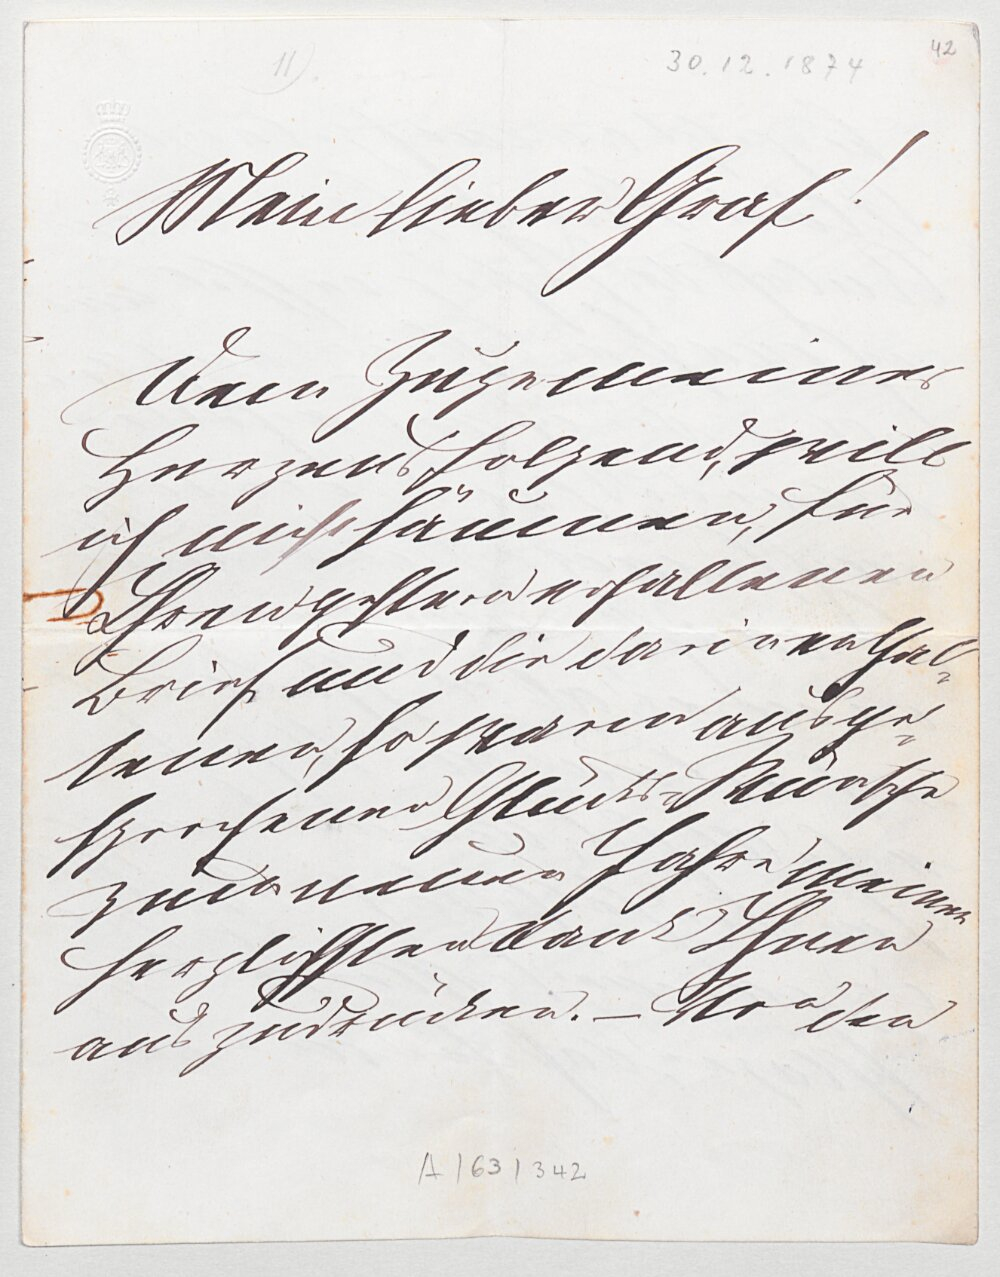 11).
30.12.1874
42
Mein lieber Graf!
Dem Zuge meines
Herzens folgend, will
ich nicht säumen, für
Ihren gestern erhaltenen
Brief und die darin enthal-
tenen, so warm ausge-
sprochenen Glücks-Wünsche
zum neuen Jahre meinen
herzlichsten Dank Ihnen
auszudrücken. – Von den
A/63/342